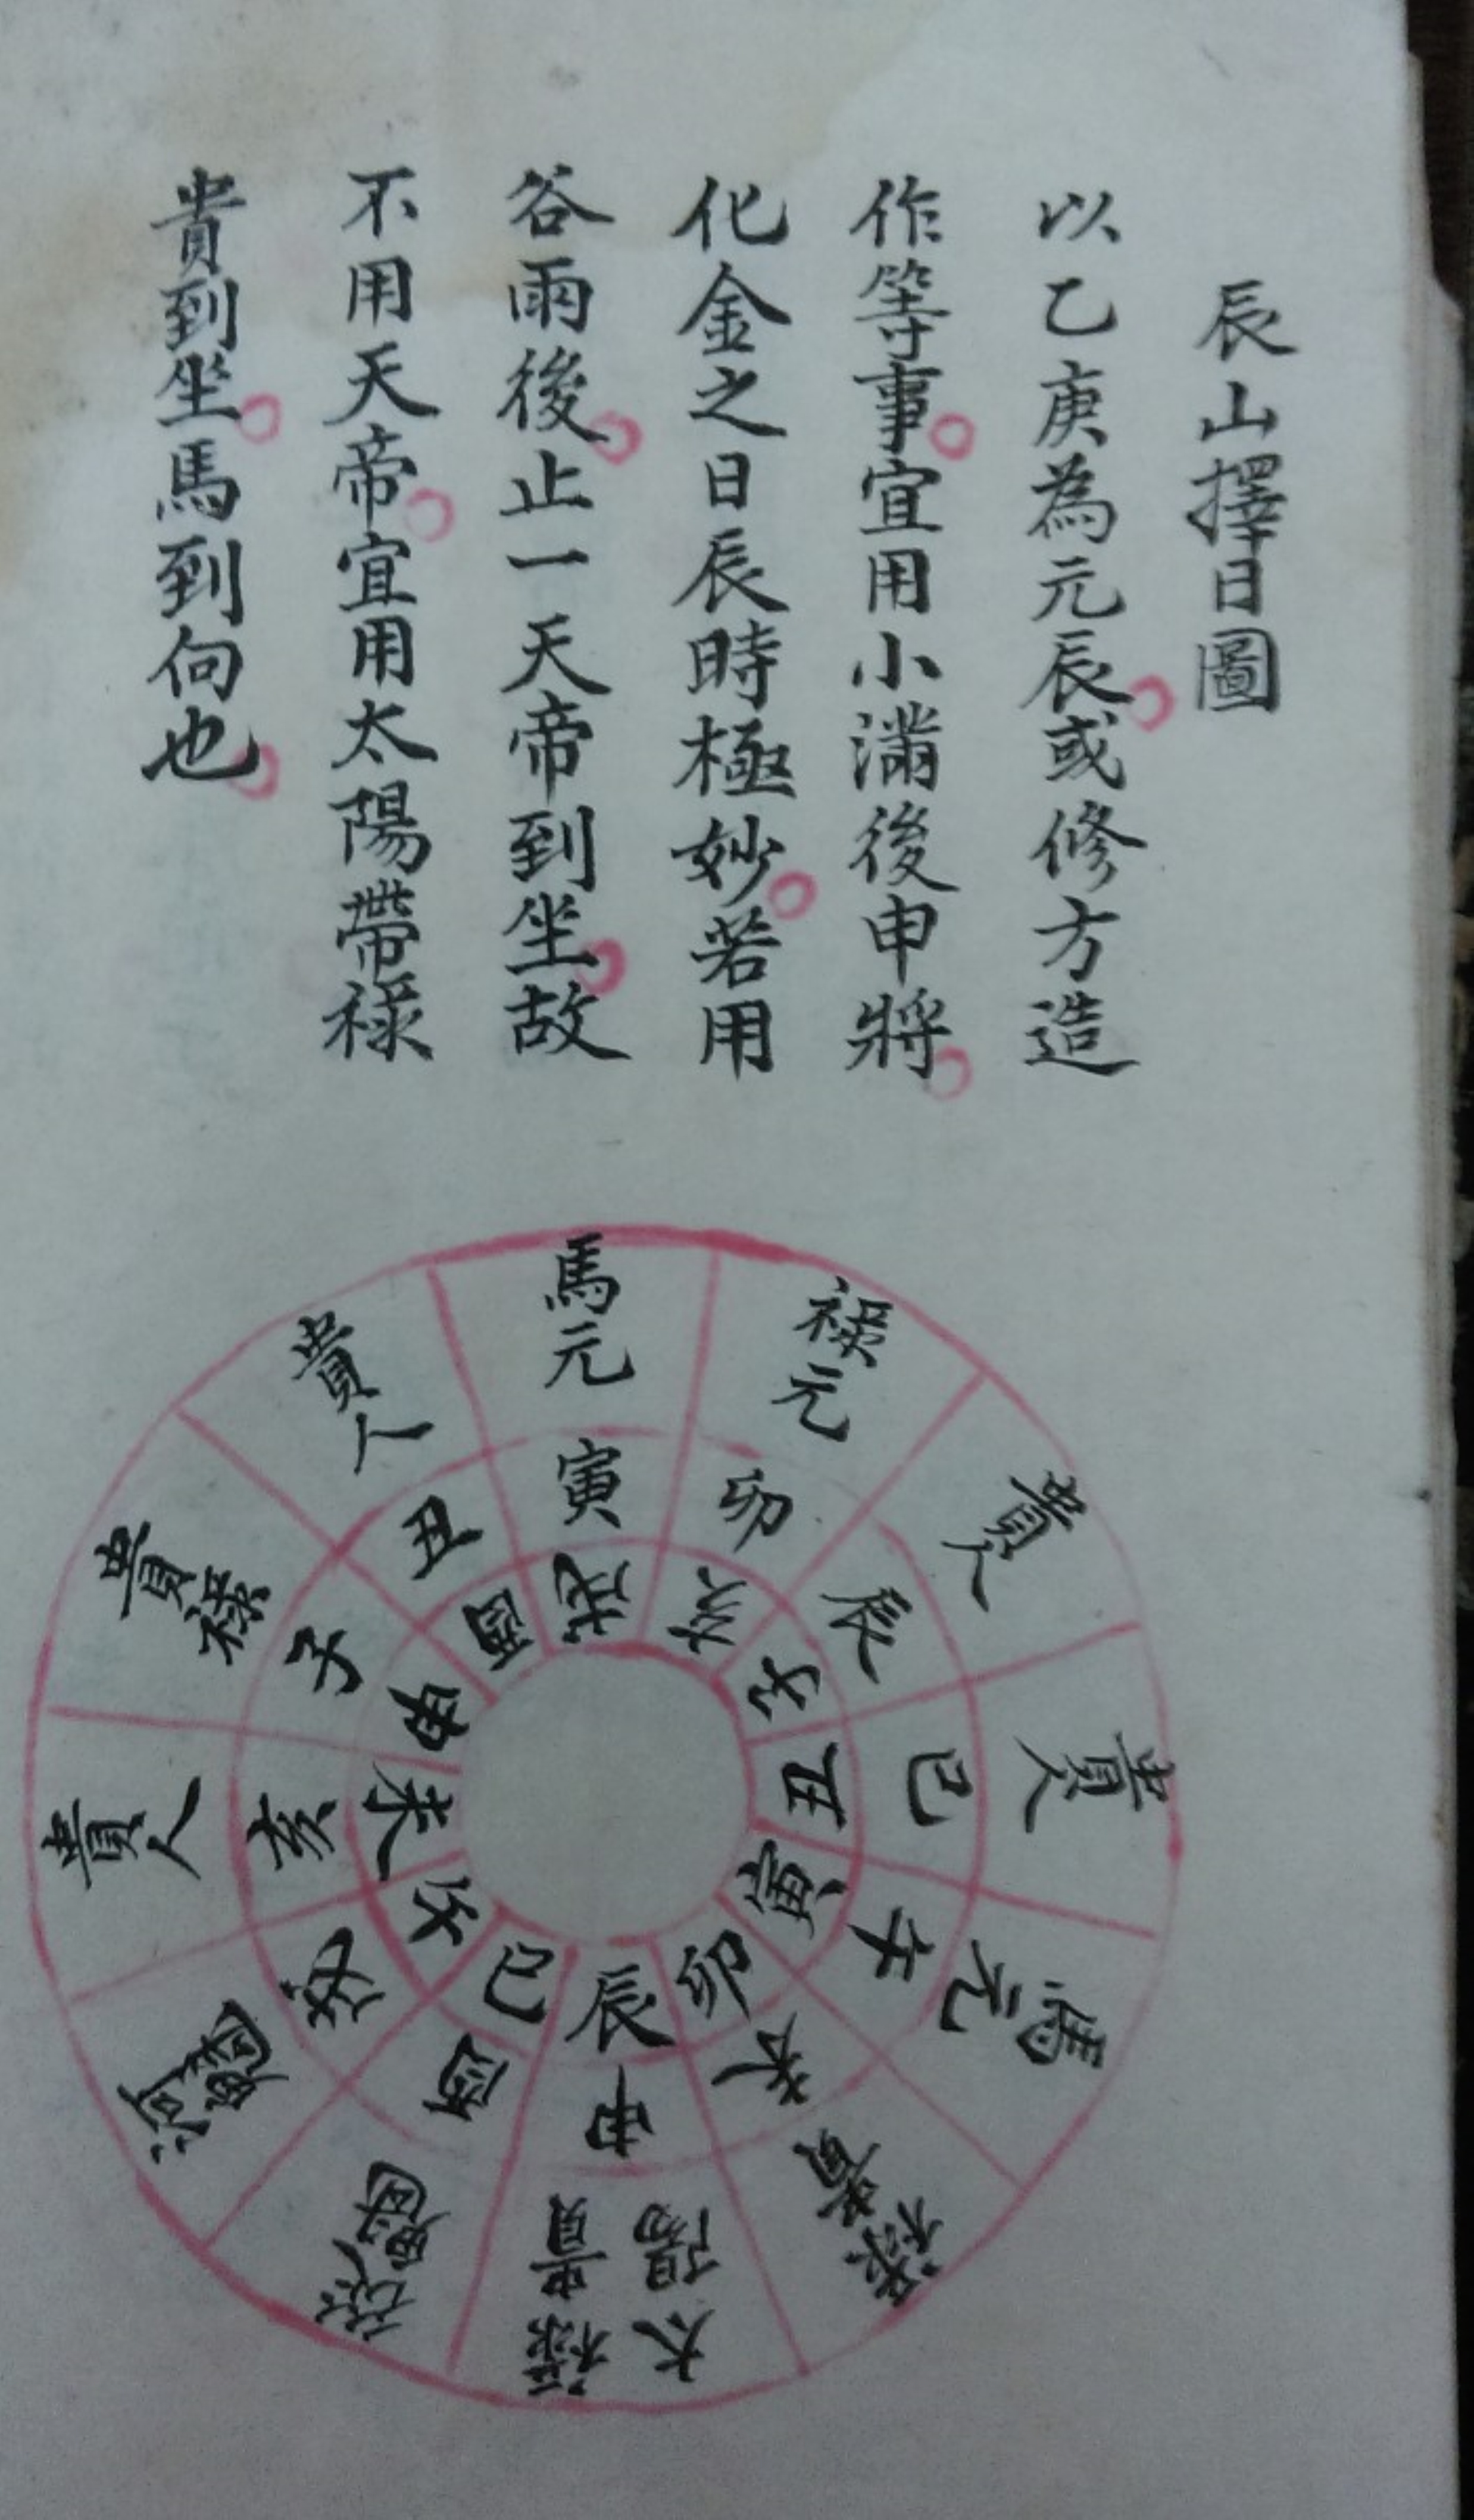 辰山擇日圖
以乙庚為元辰或修方造
作等事宜用小滿後申將
化金之日辰時極妙若用
谷雨後止一天帝到坐故
不用天帝宜用太陽帶祿
貴到坐馬到向也
馬元
寅
戌
祿元
卯
亥
貴人
辰
子
貴人
巳
丑
馬元
午
寅
祿貴
未
卯
太陽
祿貴
申
辰
酉
巳
河魁
戌
午
貴人
亥
未
貴祿
子
申
貴人
丑
酉